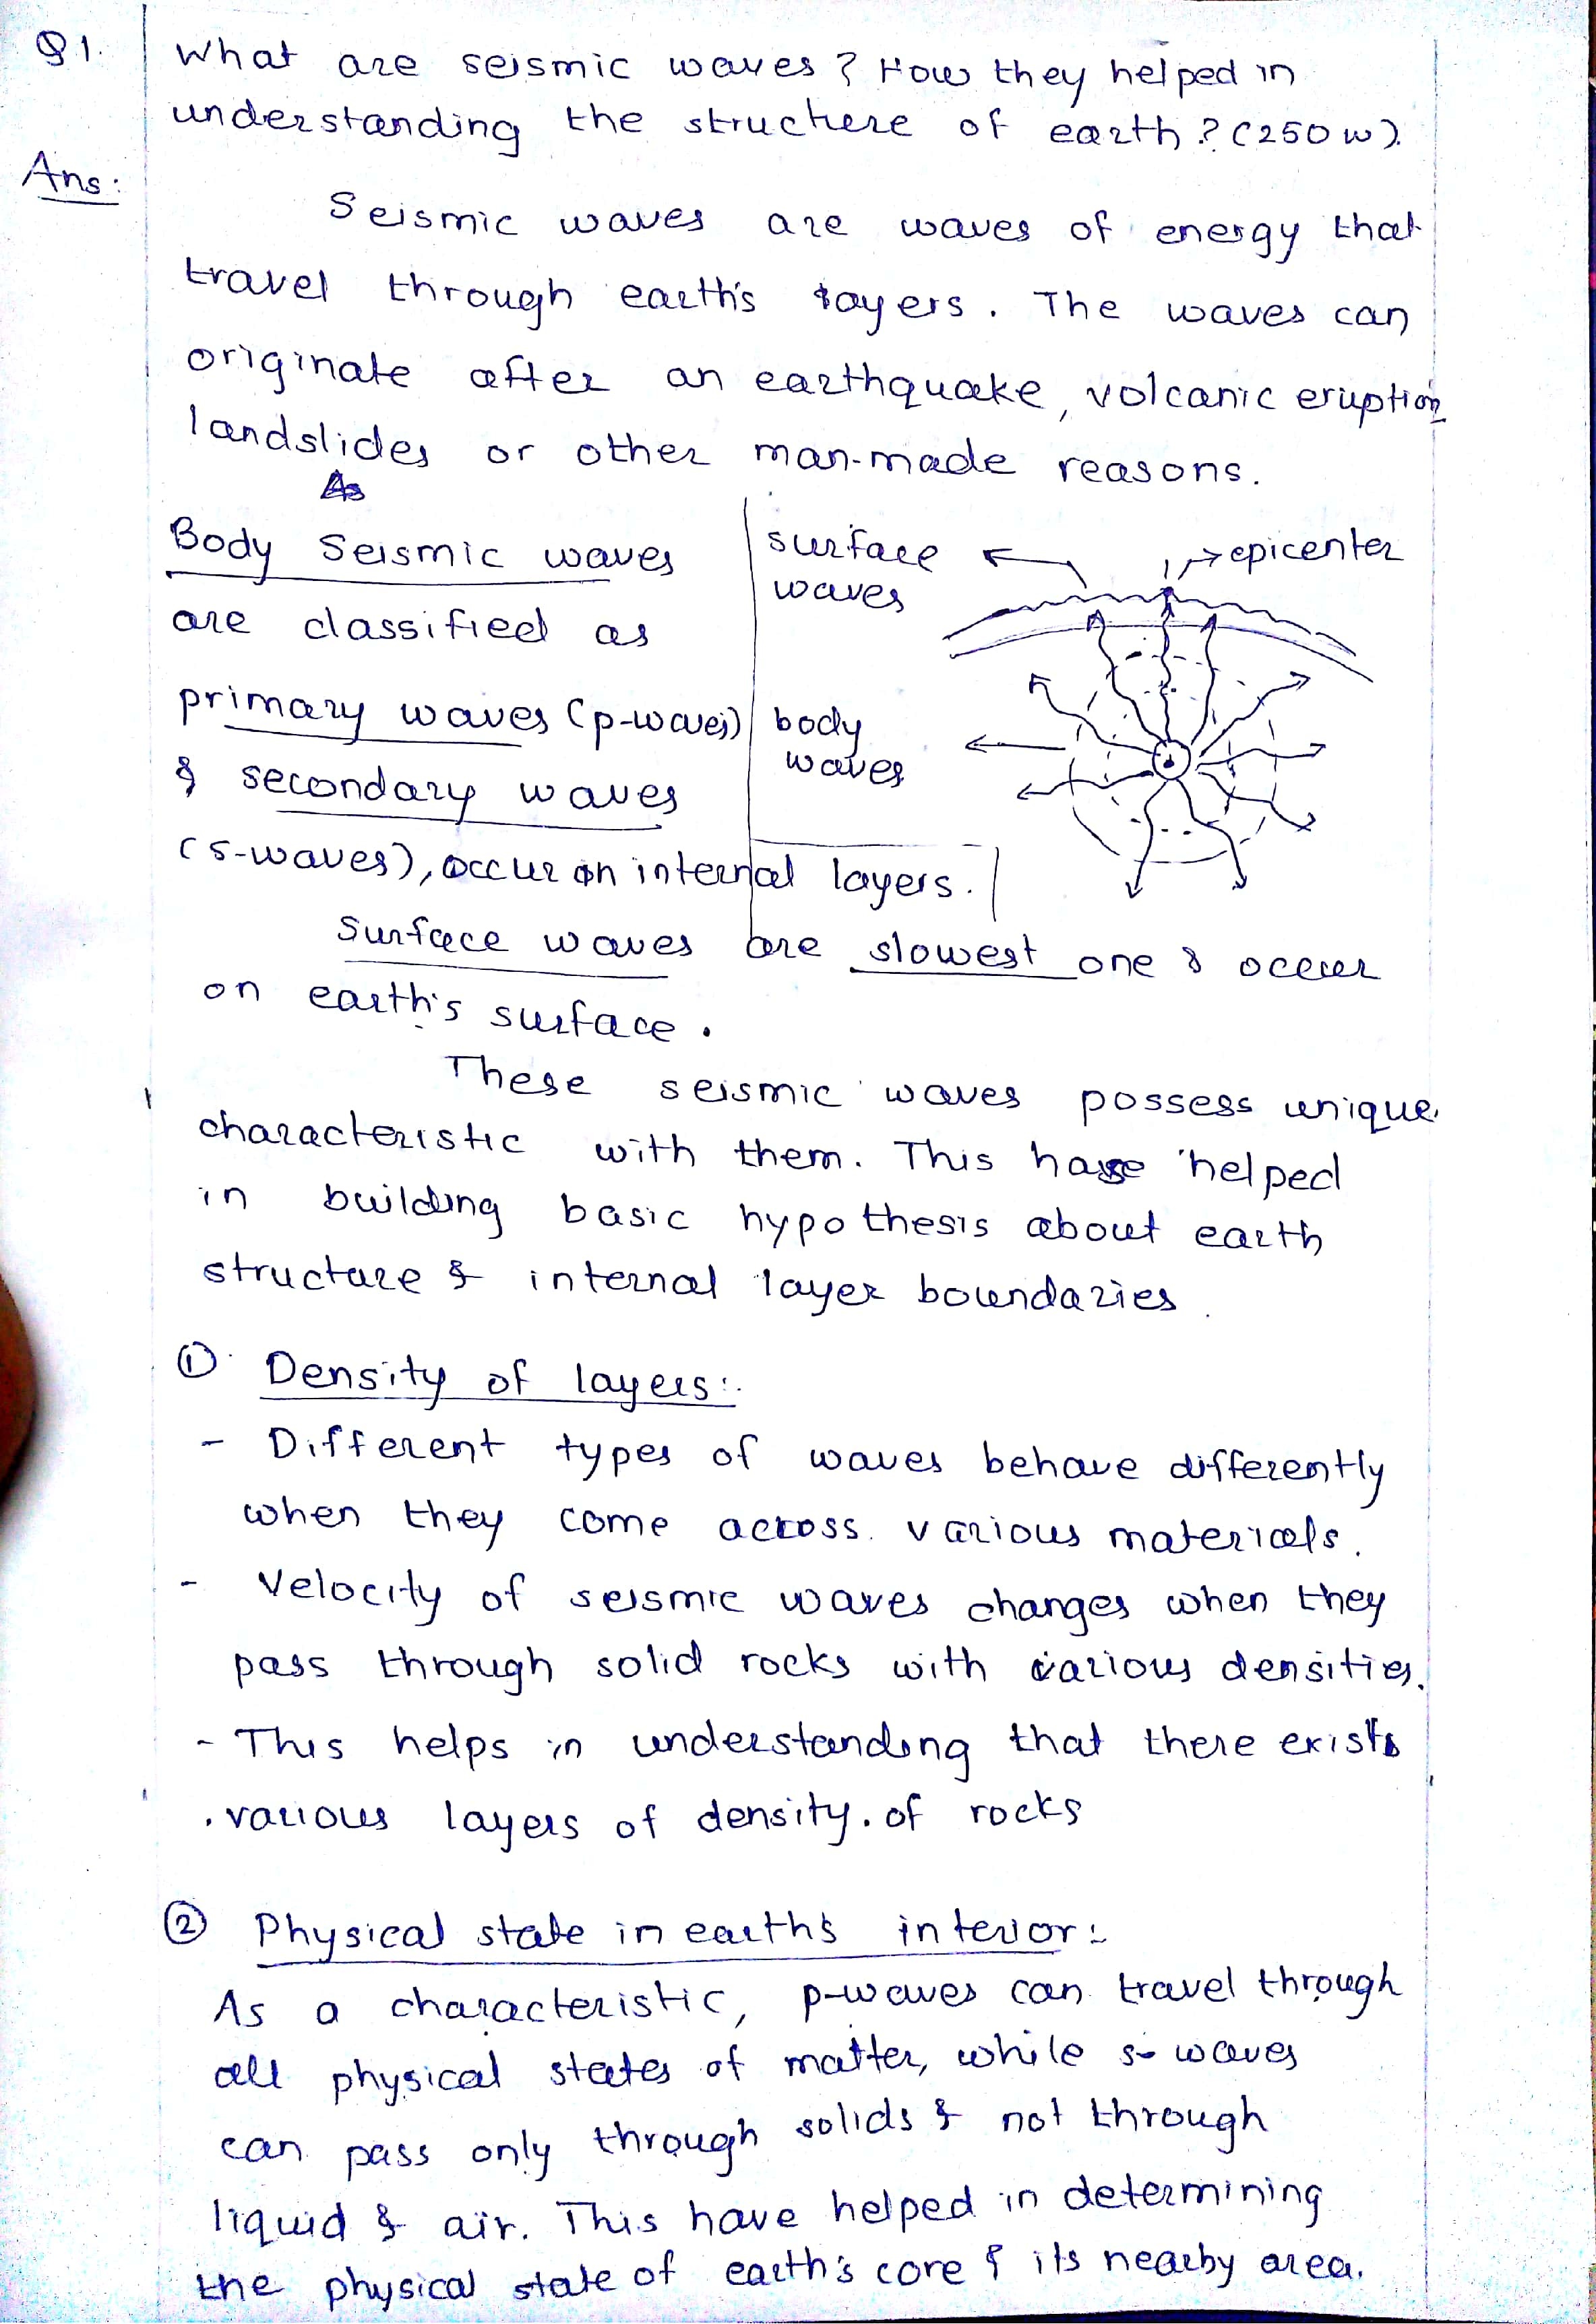 Q1. What are seismic waves? How they helped in
understanding the structure of earth? (250 w).
Ans:
Seismic waves are waves of energy that
travel through earth's layers. The waves can
originate after an earthquake, volcanic eruption
landslides or other man-made reasons.
As
Body Seismic waves
are classified as
primary waves (p-waves)
& secondary waves
(s-waves), occur in internal layers.
surface
waves
epicenter
body
waves
Surface waves are slowest one & occur
on earth's surface.
These seismic waves possess unique
characteristic with them. This have helped
in building basic hypothesis about earth
structure & internal layer boundaries.
① Density of layers:
- Different types of waves behave differently
when they come across various materials.
- Velocity of seismic waves changes when they
pass through solid rocks with various densities.
- This helps in understanding that there exists
various layers of density. of rocks
② Physical state in earth's interior:
As a characteristic, p-waves can travel through
all physical states of matter, while s-waves
can pass only through solids & not through
liquid & air. This have helped in determining
the physical state of earth's core & its nearby area.